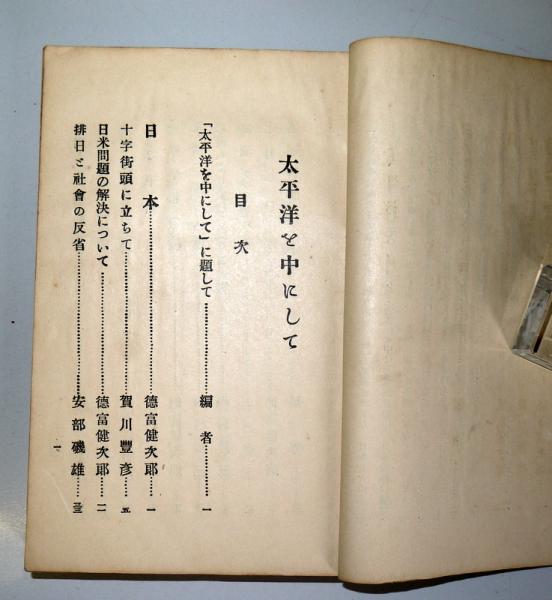 太平洋を中にして
目次
「太平洋を中にして」に題して……………編者……一
日本……………德富健次郎……一
十字街頭に立ちて……………賀川豐彦……五
日米問題の解決について……………德富健次郎……二
排日と社會の反省……………安部磯雄……
一